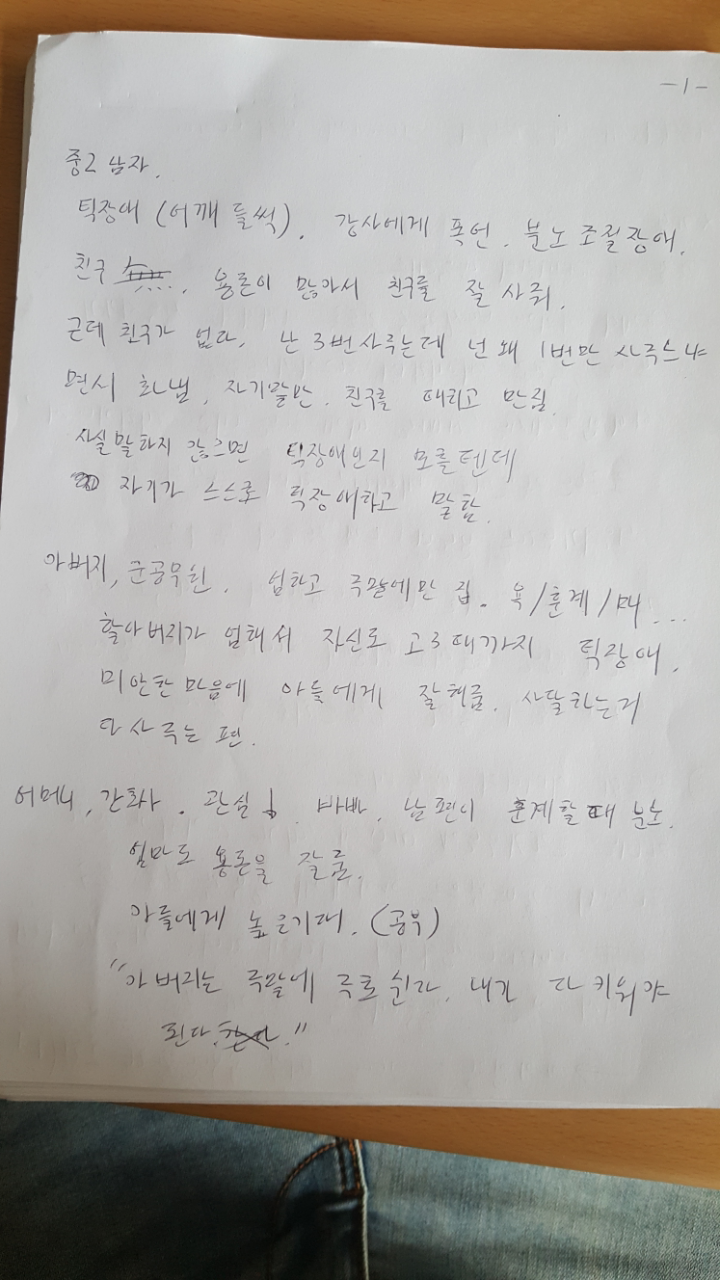 -1-
중2 남자.
틱장애 (어깨 들썩). 강사에게 폭언. 분노조절장애.
친구 용돈이 많아서 친구를 잘 사줘.
근데 친구가 없다. 난 3번사주는데 넌 왜 1번만 사주느냐
면서 화냄. 자기말만. 친구를 때리고 만짐.
사실 말하지 않으면 틱장애인지 모를텐데
자기가 스스로 틱장애라고 말함.
아버지, 군공무원. 엄하고 주말에만 집. 욕/훈계/매...
할아버지가 엄해서 자신도 고3때까지 틱장애.
미안한 마음에 아들에게 잘해줌. 사달하는거
다 사주는 편.
어머니, 간호사. 관심↓. 바빠. 남편이 훈계할때 분노.
엄마도 용돈을 잘줌.
아들에게 높은기대. (공부)
"아버지는 주말에 주로 쉰다. 내가 다 키워야
된다."